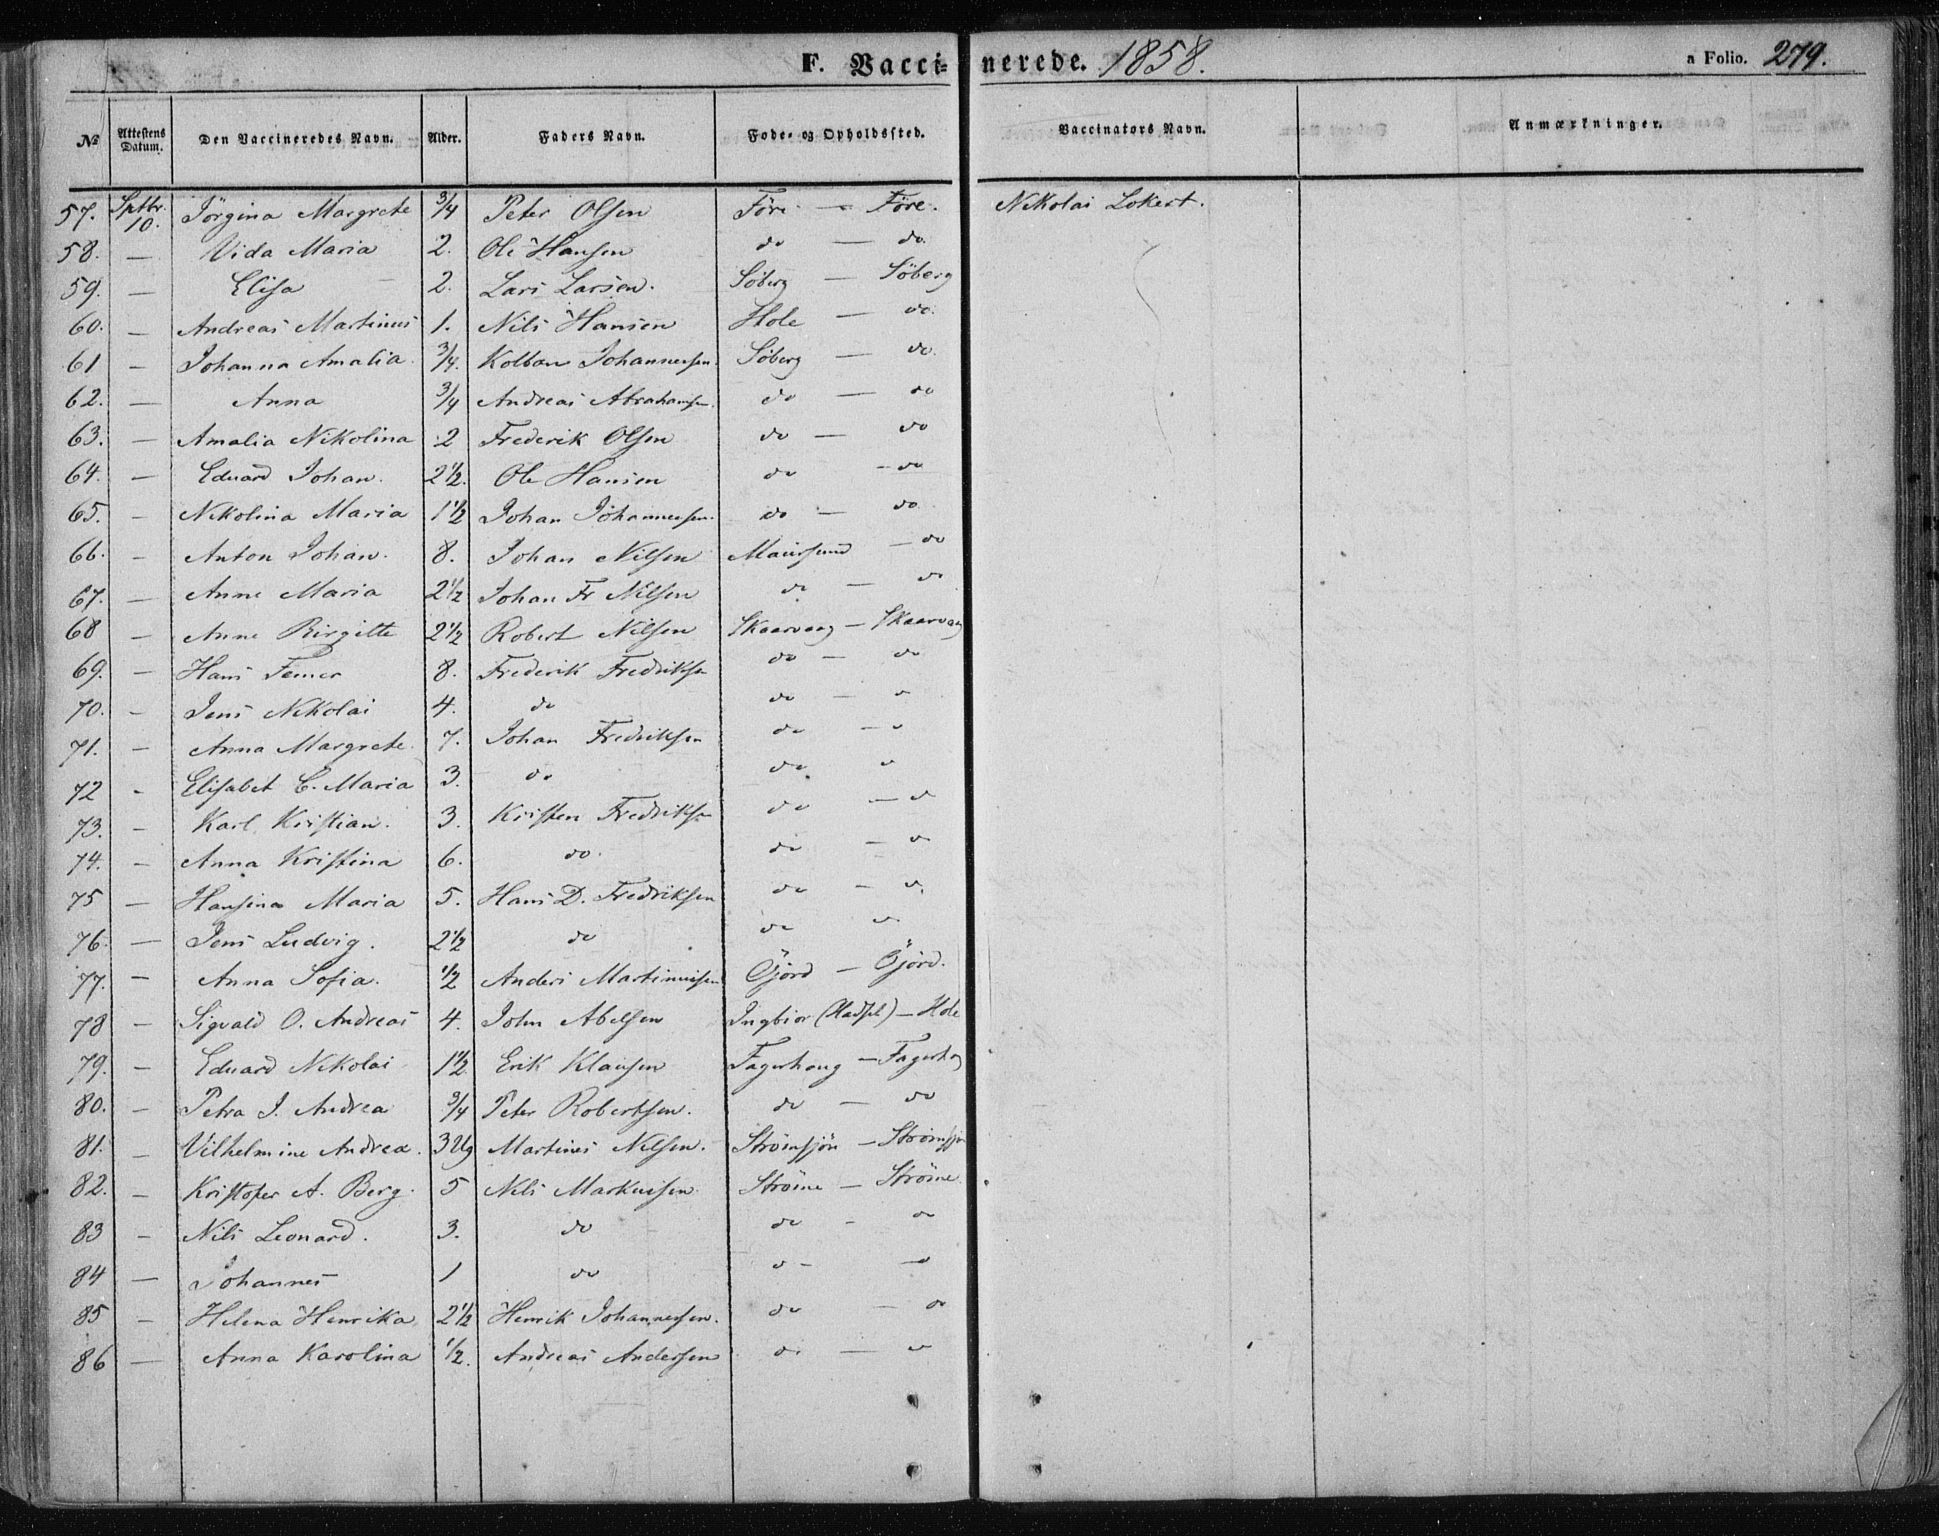 F. Vaccinerede. 1858. a Folio. 279.
№ Attestens Datum. Den Vaccineredes Navn. Alder. Faders Navn. Føde- og Opholdssted. Vaccinators Navn. Anmærkninger.
57. Sptbr. 10. Jörgina Margrete 3/4 Peter Olsen Före — Före. Nikolai Lokert.
58. — Vida Maria 2. Ole Hansen do — do.
59. — Elisa — 2. Lars Larsen. Söberg — Söberg
60. — Andreas Martinus 1. Nils Hansen Hole — do.
61 — Johanna Amalia. 3/4. Kolban Johannessen. Söberg — do.
62. — Anna 3/4 Andreas Abrahamsen. do — do
63. — Amalia Nikolina 2 Frederik Olsen do — do
64. — Eduard Johan. 2 1/2. Ole Hansen do — do
65. — Nikolina Maria 1 1/2 Johan Johannessen. do — do
66. — Anton Johan. 8. Johan Nilsen Maursund — do
67. — Anne Maria 2 1/2 Johan Fr Nilsen do — do
68 — Anne Birgitte 2 1/2 Robert Nilsen Skaarvaag — Skaarvaag
69. — Hans Femer 8. Frederik Fredriksen do — do
70. — Jens Nikolai 4. do do — do
71. — Anna Margrete. 7. Johan Fredriksen do — do
72 - Elisabet C. Maria 3. do do do
73. — Karl Kristian. 3. Kristen Fredriksen do — do
74. — Anna Kristina 6. do. do — do
75 — Hansina Maria 5. Hans D. Fredriksen do — do.
76. — Jens Ludvig. 2 1/2 do do do
77. — Anna Sofia. 1/2 Anders Martinussen Gjörd — Gjörd.
78 — Sigvald O. Andreas 4. John Abelsen Ingbior (Hadsel) — Hole
79. — Eduard Nikolai 1 1/2 Erik Klausen Fagerhaug — Fagerhaug
80. — Petra J. Andrea 3/4 Peter Robertsen. do — do
81. — Vilhelmine Andrea. 3 Ug Martines Nilsen. Strömsjön — Strömsjön
82. — Kristofer A. Berg. 5 Nils Markussen Ströme — Ströme
83 — Nils Leonard. 3. do do - do
84 — Johannes 1 do do - do
85 — Helena Henrika 2 1/2 Henrik Johannessen. do — do
86 — Anna Karolina 1/2. Andreas Andersen do — do